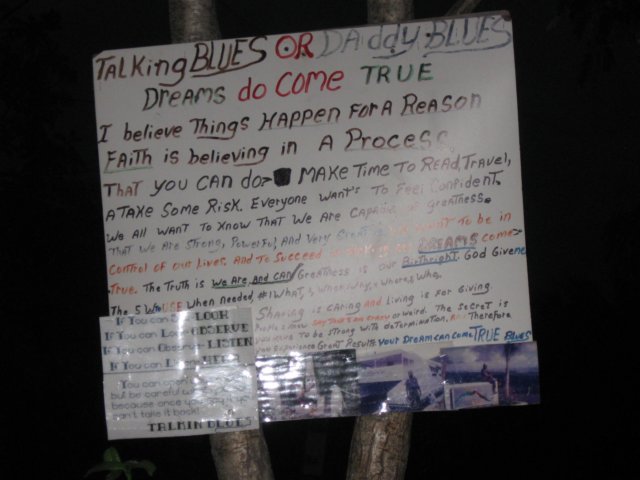 TALKing BLUES OR DAddy BLUES
DREAMS do COME TRUE
I believe Things HAPPEN FOR A REASON
FAiTH is believing in A Process,
THAT you CAN do> MAKE Time To READ, TRAVEL,
ATAKE Some RisK. Everyone WANT's To Feel Confident.
We All WANT To Know THAT We ARE CAPABLE of greATNess.
THAT We ARE STRONg, PoweRFul, ANd Very GreAT WANT To be in
CONTROL OF OUR Lives, ANd To Succeed DREAMS come>
True. The TRuTh is We ARe ANd CAN GreATNess is OUR BirThrighT. God Given
The 5 W's USE WHeN Needed, #1 WHAT, WHeN, WHy, WHere, WHo.
SHARing is cARing ANd Living is For Giving
People may SAy THAT Crazy or Weird. The SecreT is
you HAVE To be STRONg WiTH deTerminATion, ANd THerefore
you Experience GreAT ResulTs. your DreAm CAN Come TRUE BLUES
If You can LOOK
If You can Look OBSERVE
If You can Observe LISTEN
If You can
You can
but be careful
because once you
can't take it back!
TALKIN BLUES